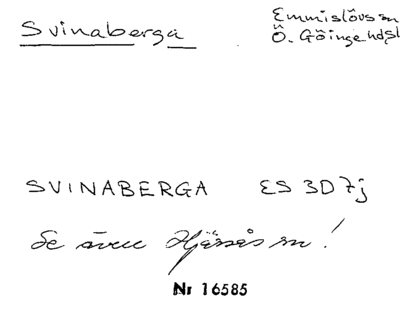 Svinaberga
Emmislövs sn
Ö. Göinge hd, Sk
SVINABERGA ES 3D7j
Se även Hjärsås sn!
Nr 16585